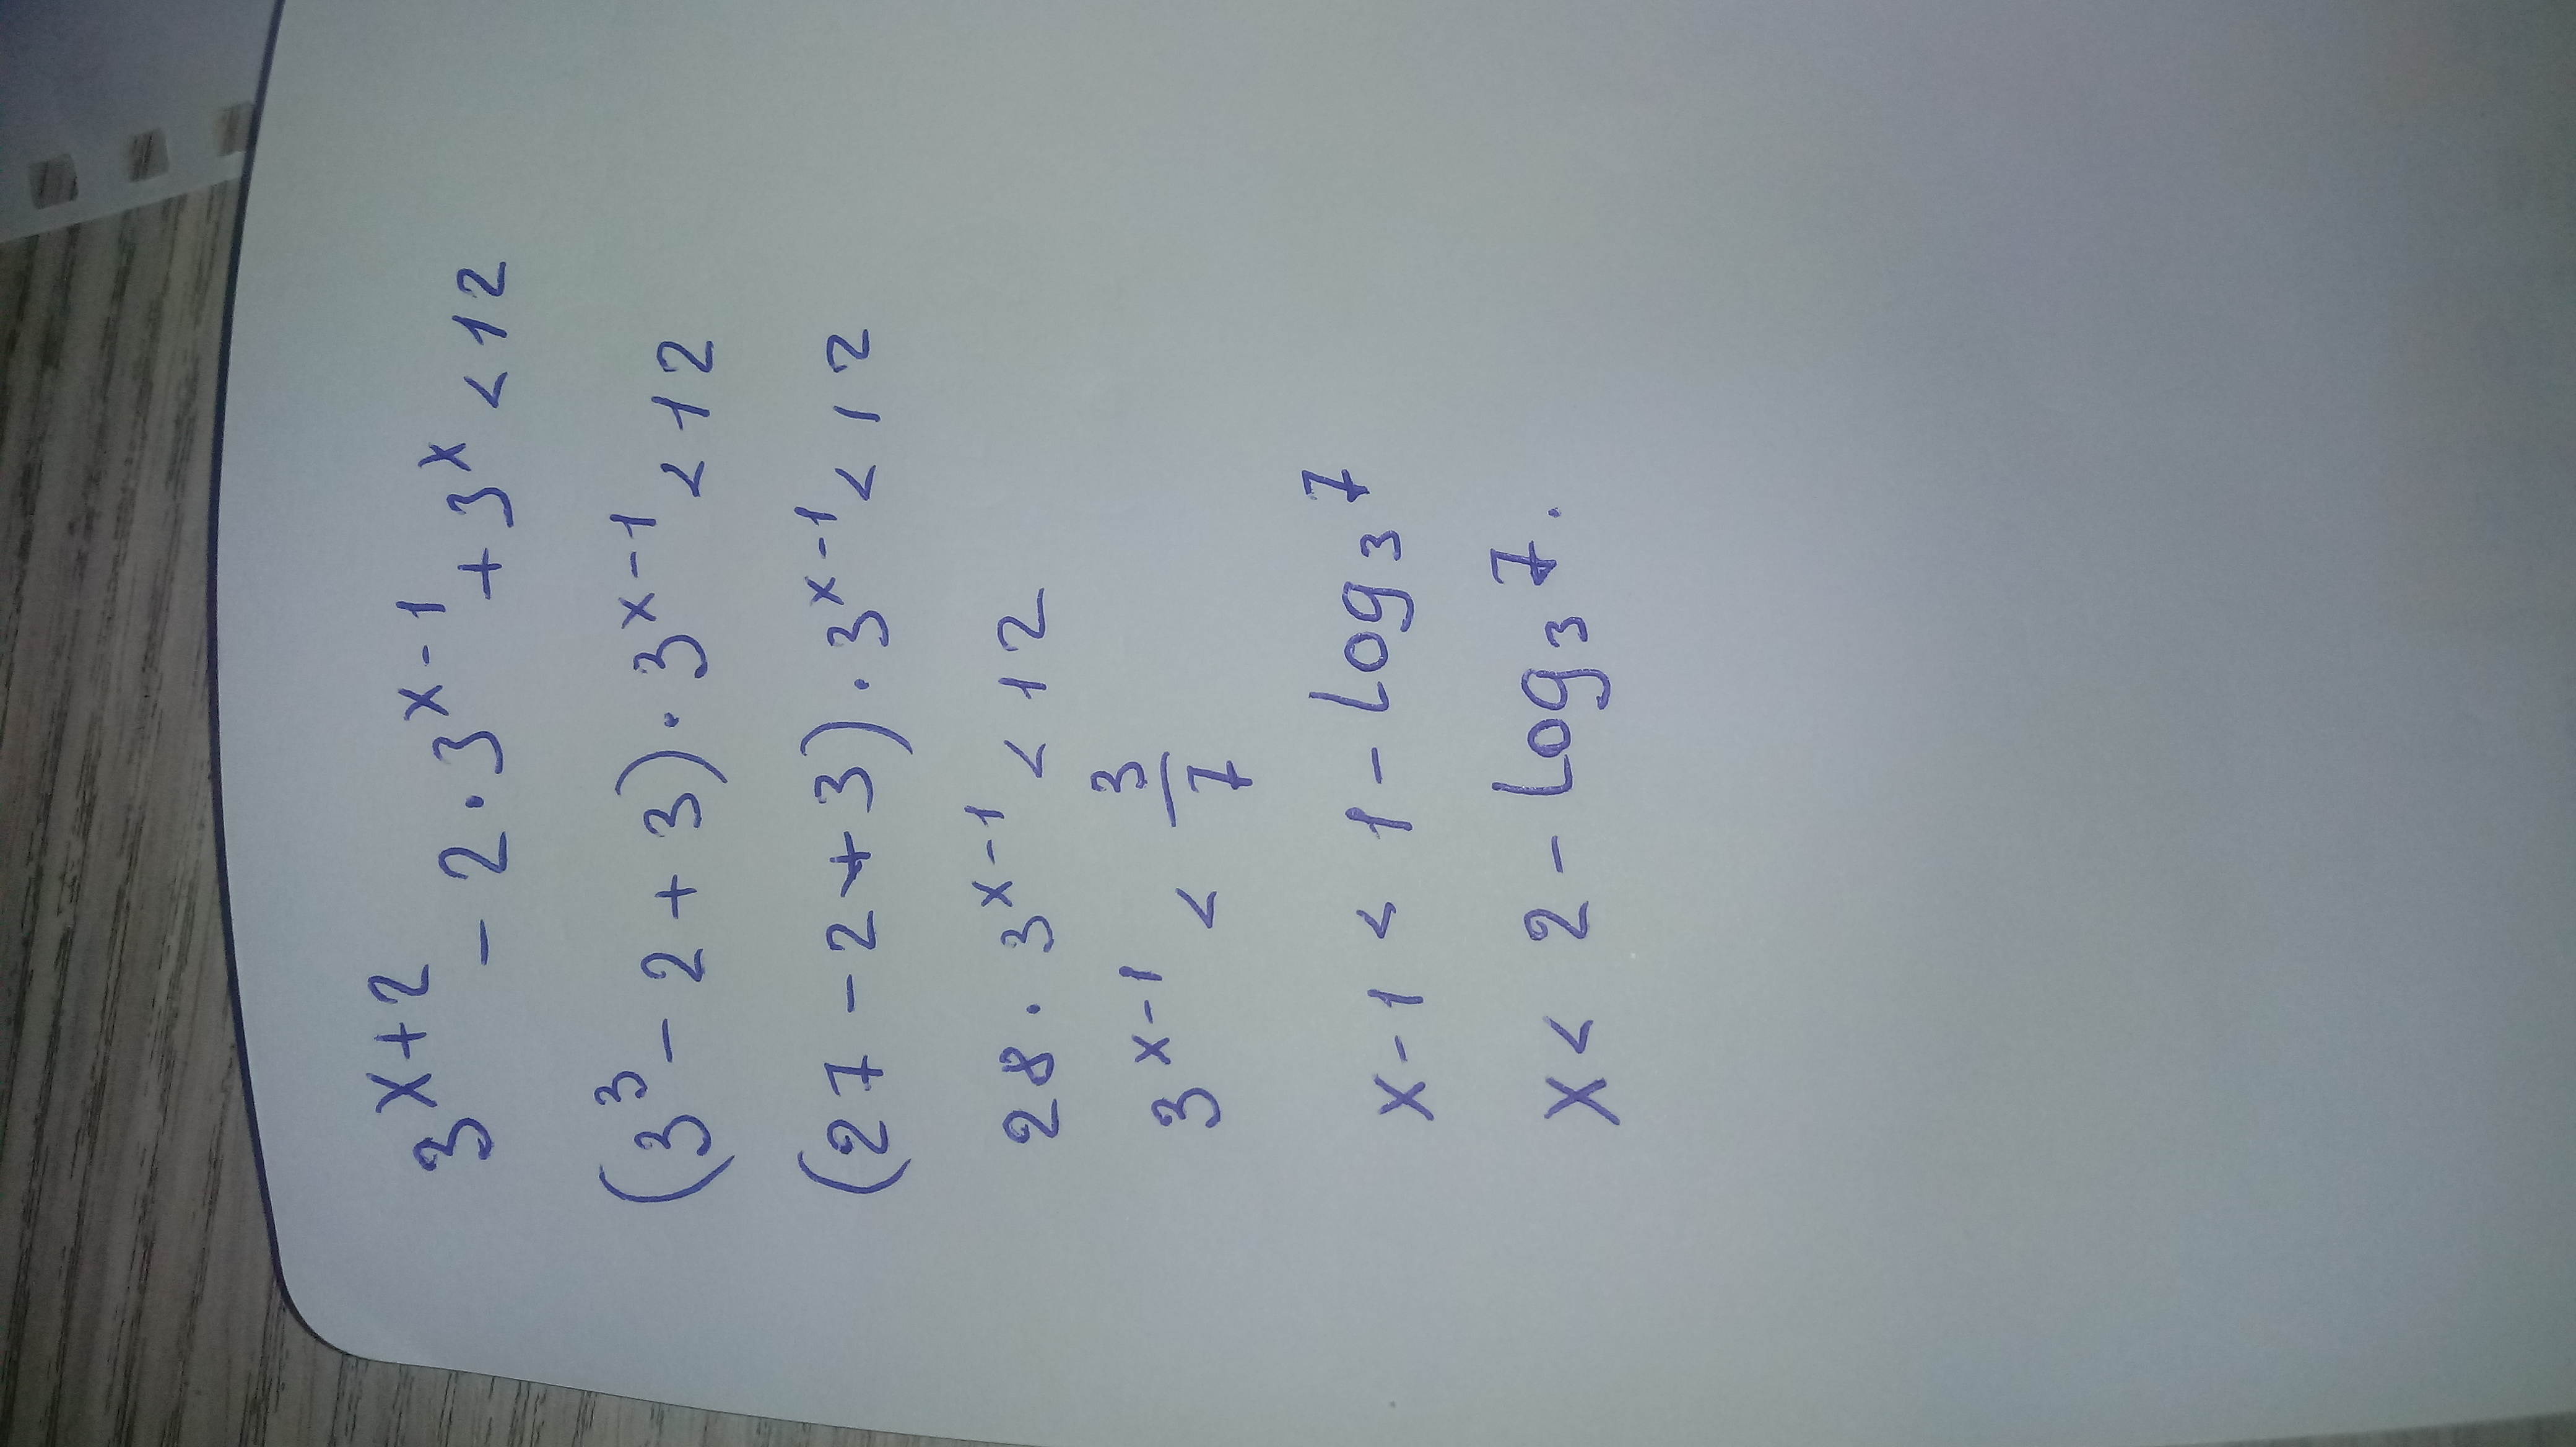 3^{x+2} - 2 · 3^{x-1} + 3^x < 12
(3^3 - 2 + 3) · 3^{x-1} < 12
(27 - 2 + 3) · 3^{x-1} < 12
28 · 3^{x-1} < 12
3^{x-1} < \frac{3}{7}
x - 1 < 1 - log_3 7
x < 2 - log_3 7.